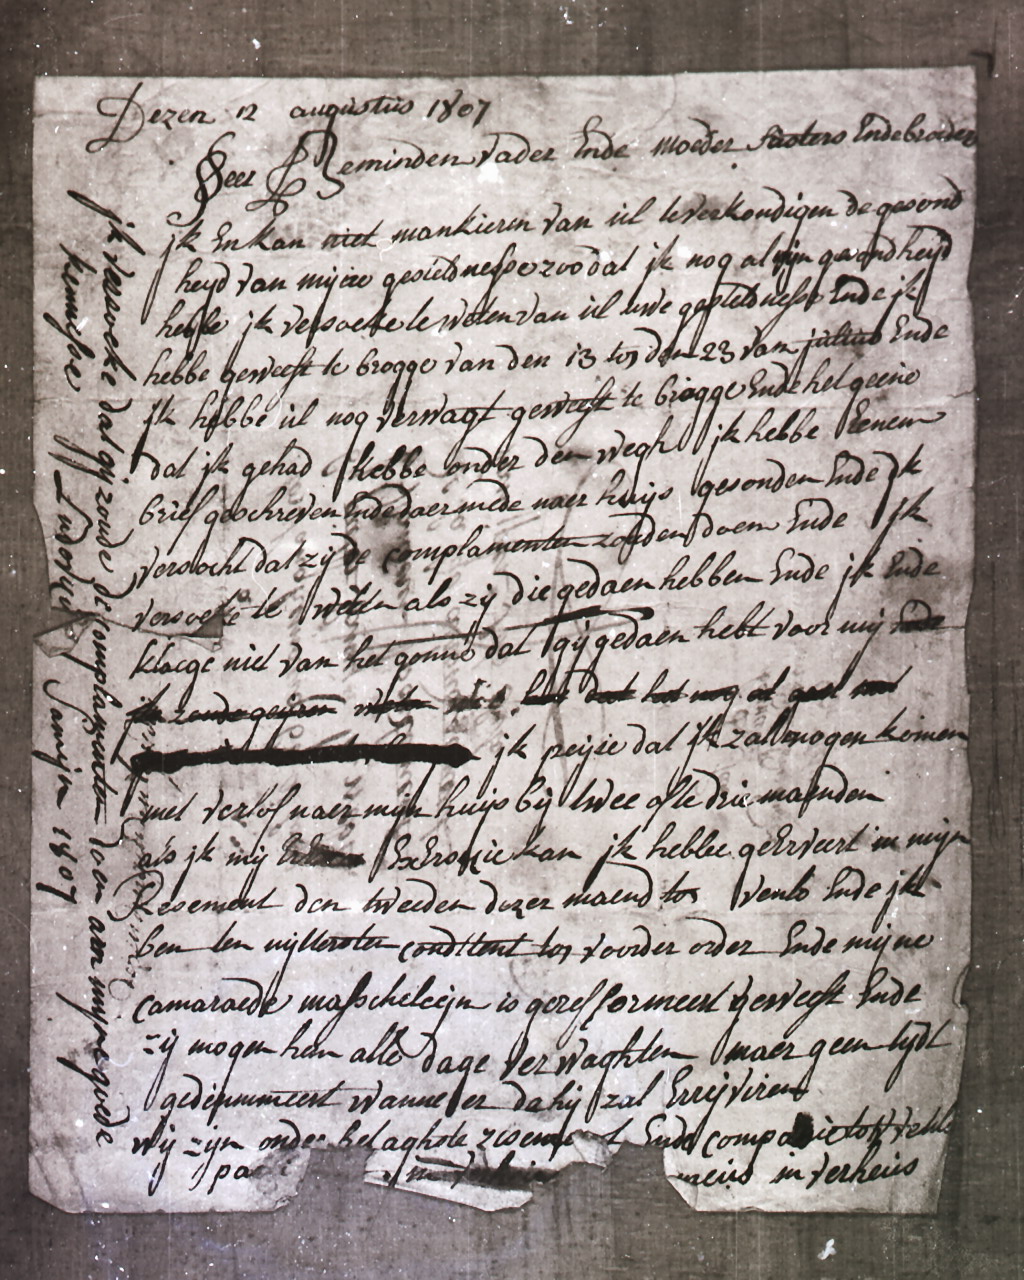 Dezen 12 augustus 1807
Seer Beminden Vader Ende Moeder Susters Ende broeders
jk En kan niet mankieren van ul te verkondigen de gesond
heyd van mijne gesteldnesse zoo dat jk nog al mijn gesondheyd
hebbe jk versoeke te weten van ul uwe gesteldnesse Ende jk
hebbe geweest te brogge van den 13 tot den 23 van julius Ende
jk hebbe ul nog verwagt geweest te brogge Ende het geene
dat jk gehad hebbe onder den wegh jk hebbe Eenen
brief geschreven Ende daer mede naer huijs gesonden Ende jk
versocht dat zij de complamenten zouden doen Ende jk
versoeke te weten als zij die gedaen hebben Ende jk Ende
klaege niet van het gonne dat gij gedaen hebt voor mij
jk peijse dat jk zal mogen komen
met verlof naer mijn huijs bij twee ofte drie maenden
als jk mij kan jk hebbe geErveert in mijn
Resement den tweeden dezer maend tot venlo Ende jk
ben ten uijttersten content tot voorder order Ende mijne
camaraede masscheleijn is gereformeert geweest Ende
zij mogen hem alle dage verwaghten maer geen tijdt
gedenummeert wanneer da hij zal Erreijviren
wij zijn onder
in verheus
jk versoeke dat gij zoude de complamenten doen aen mijne goede
kennisse Ludovicus Samijn 1807